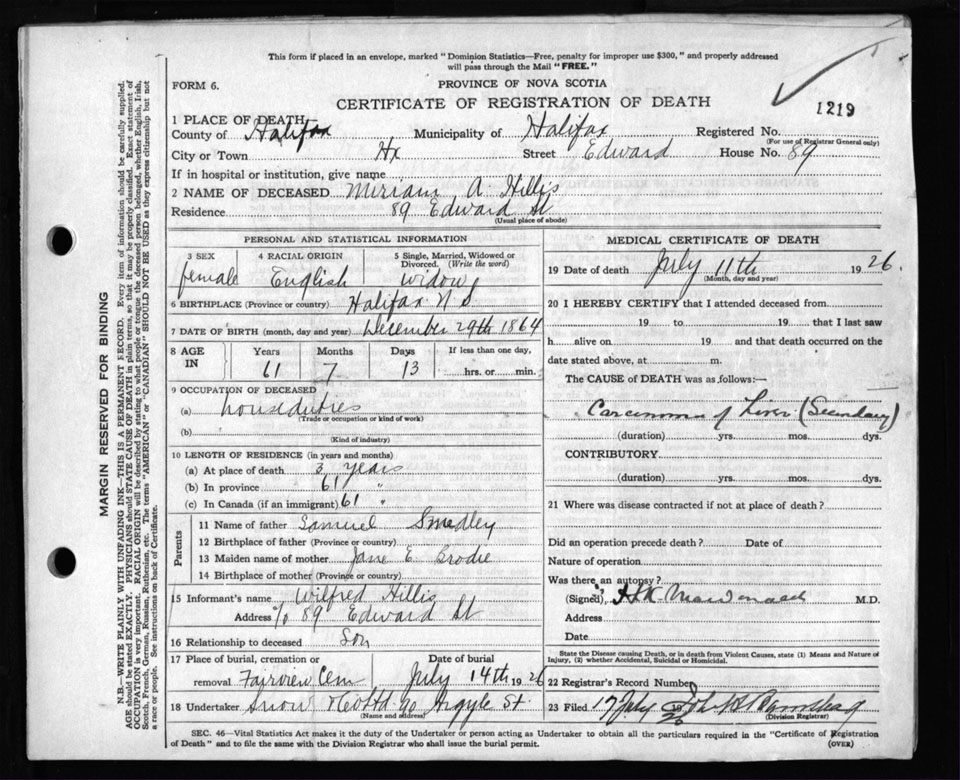 This form if placed in an envelope, marked "Dominion Statistics—Free, penalty for improper use $300," and properly addressed
will pass through the Mail "FREE."
FORM 6.
PROVINCE OF NOVA SCOTIA
CERTIFICATE OF REGISTRATION OF DEATH
1219
1 PLACE OF DEATH
County of Halifax Municipality of Halifax Registered No.
(For use of Registrar General only)
City or Town Hx Street Edward House No. 89
If in hospital or institution, give name
2 NAME OF DECEASED Miriam A. Hillis
Residence 89 Edward St
(Usual place of abode)
PERSONAL AND STATISTICAL INFORMATION
3 SEX 4 RACIAL ORIGIN 5 Single, Married, Widowed or
Divorced. (Write the word)
female English Widow
6 BIRTHPLACE (Province or country) Halifax N S
7 DATE OF BIRTH (month, day and year) December 29th 1864
8 AGE IN Years Months Days If less than one day,
61 7 13 hrs. or min.
9 OCCUPATION OF DECEASED
(a) house duties
(Trade or occupation or kind of work)
(b)
(Kind of industry)
10 LENGTH OF RESIDENCE (in years and months)
(a) At place of death 3 years
(b) In province 61 "
(c) In Canada (if an immigrant) 61 "
Parents
11 Name of father Samuel Smedley
12 Birthplace of father (Province or country)
13 Maiden name of mother Jane E Brodie
14 Birthplace of mother (Province or country)
15 Informant's name Wilfred Hillis
Address % 89 Edward St
16 Relationship to deceased Son
17 Place of burial, cremation or Date of burial
removal Fairview Cem July 14th 1926
18 Undertaker Snow & Co Ltd 90 Argyle St.
(Name and address)
MEDICAL CERTIFICATE OF DEATH
19 Date of death July 11th 1926.
(Month, day and year)
20 I HEREBY CERTIFY that I attended deceased from
19 to 19 that I last saw
h alive on 19 and that death occurred on the
date stated above, at m.
The CAUSE of DEATH was as follows:—
Carcinoma of Liver (Secondary)
(duration) yrs. mos. dys.
CONTRIBUTORY
(duration) yrs. mos. dys.
21 Where was disease contracted if not at place of death?
Did an operation precede death? Date of
Nature of operation
Was there an autopsy?
(Signed) M.D.
Address
Date
State the Disease causing Death, or in death from Violent Causes, state (1) Means and Nature of
Injury, (2) whether Accidental, Suicidal or Homicidal.
22 Registrar's Record Number
23 Filed 17 July 1926
(Division Registrar)
SEC. 46—Vital Statistics Act makes it the duty of the Undertaker or person acting as Undertaker to obtain all the particulars required in the "Certificate of Registration
of Death" and to file the same with the Division Registrar who shall issue the burial permit. (OVER)
MARGIN RESERVED FOR BINDING
N.B.—WRITE PLAINLY WITH UNFADING INK—THIS IS A PERMANENT RECORD. Every item of information should be carefully supplied.
AGE should be stated EXACTLY. PHYSICIANS should STATE CAUSE OF DEATH in plain terms, so that it may be properly classified. Exact statement of
OCCUPATION is very important. RACIAL ORIGIN will be described by stating to what people or tongue the deceased person belonged, whether English, Irish,
Scotch, French, German, Russian, Ruthenian, etc. The terms "AMERICAN" or "CANADIAN" SHOULD NOT BE USED as they express citizenship but not
a race or people. See instructions on back of Certificate.